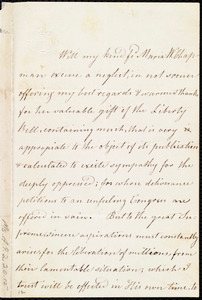 Will my kind fd. Maria W. Chap-
man excuse a neglect, in not sooner
offering my best regards & warmest thanks
for her valuable gift of the Liberty
Bell, containing much, that is very &
appropriate to the object of its publication
& calculated to excite sympathy for the
deeply oppressed; for whose deliverance
petitions to an unfeeling Congress are
offered in vain. But to the great
aspirations must constantly
arise, for the liberation of millions, from
their lamentable situation; which I
trust will be effected in His own time, to